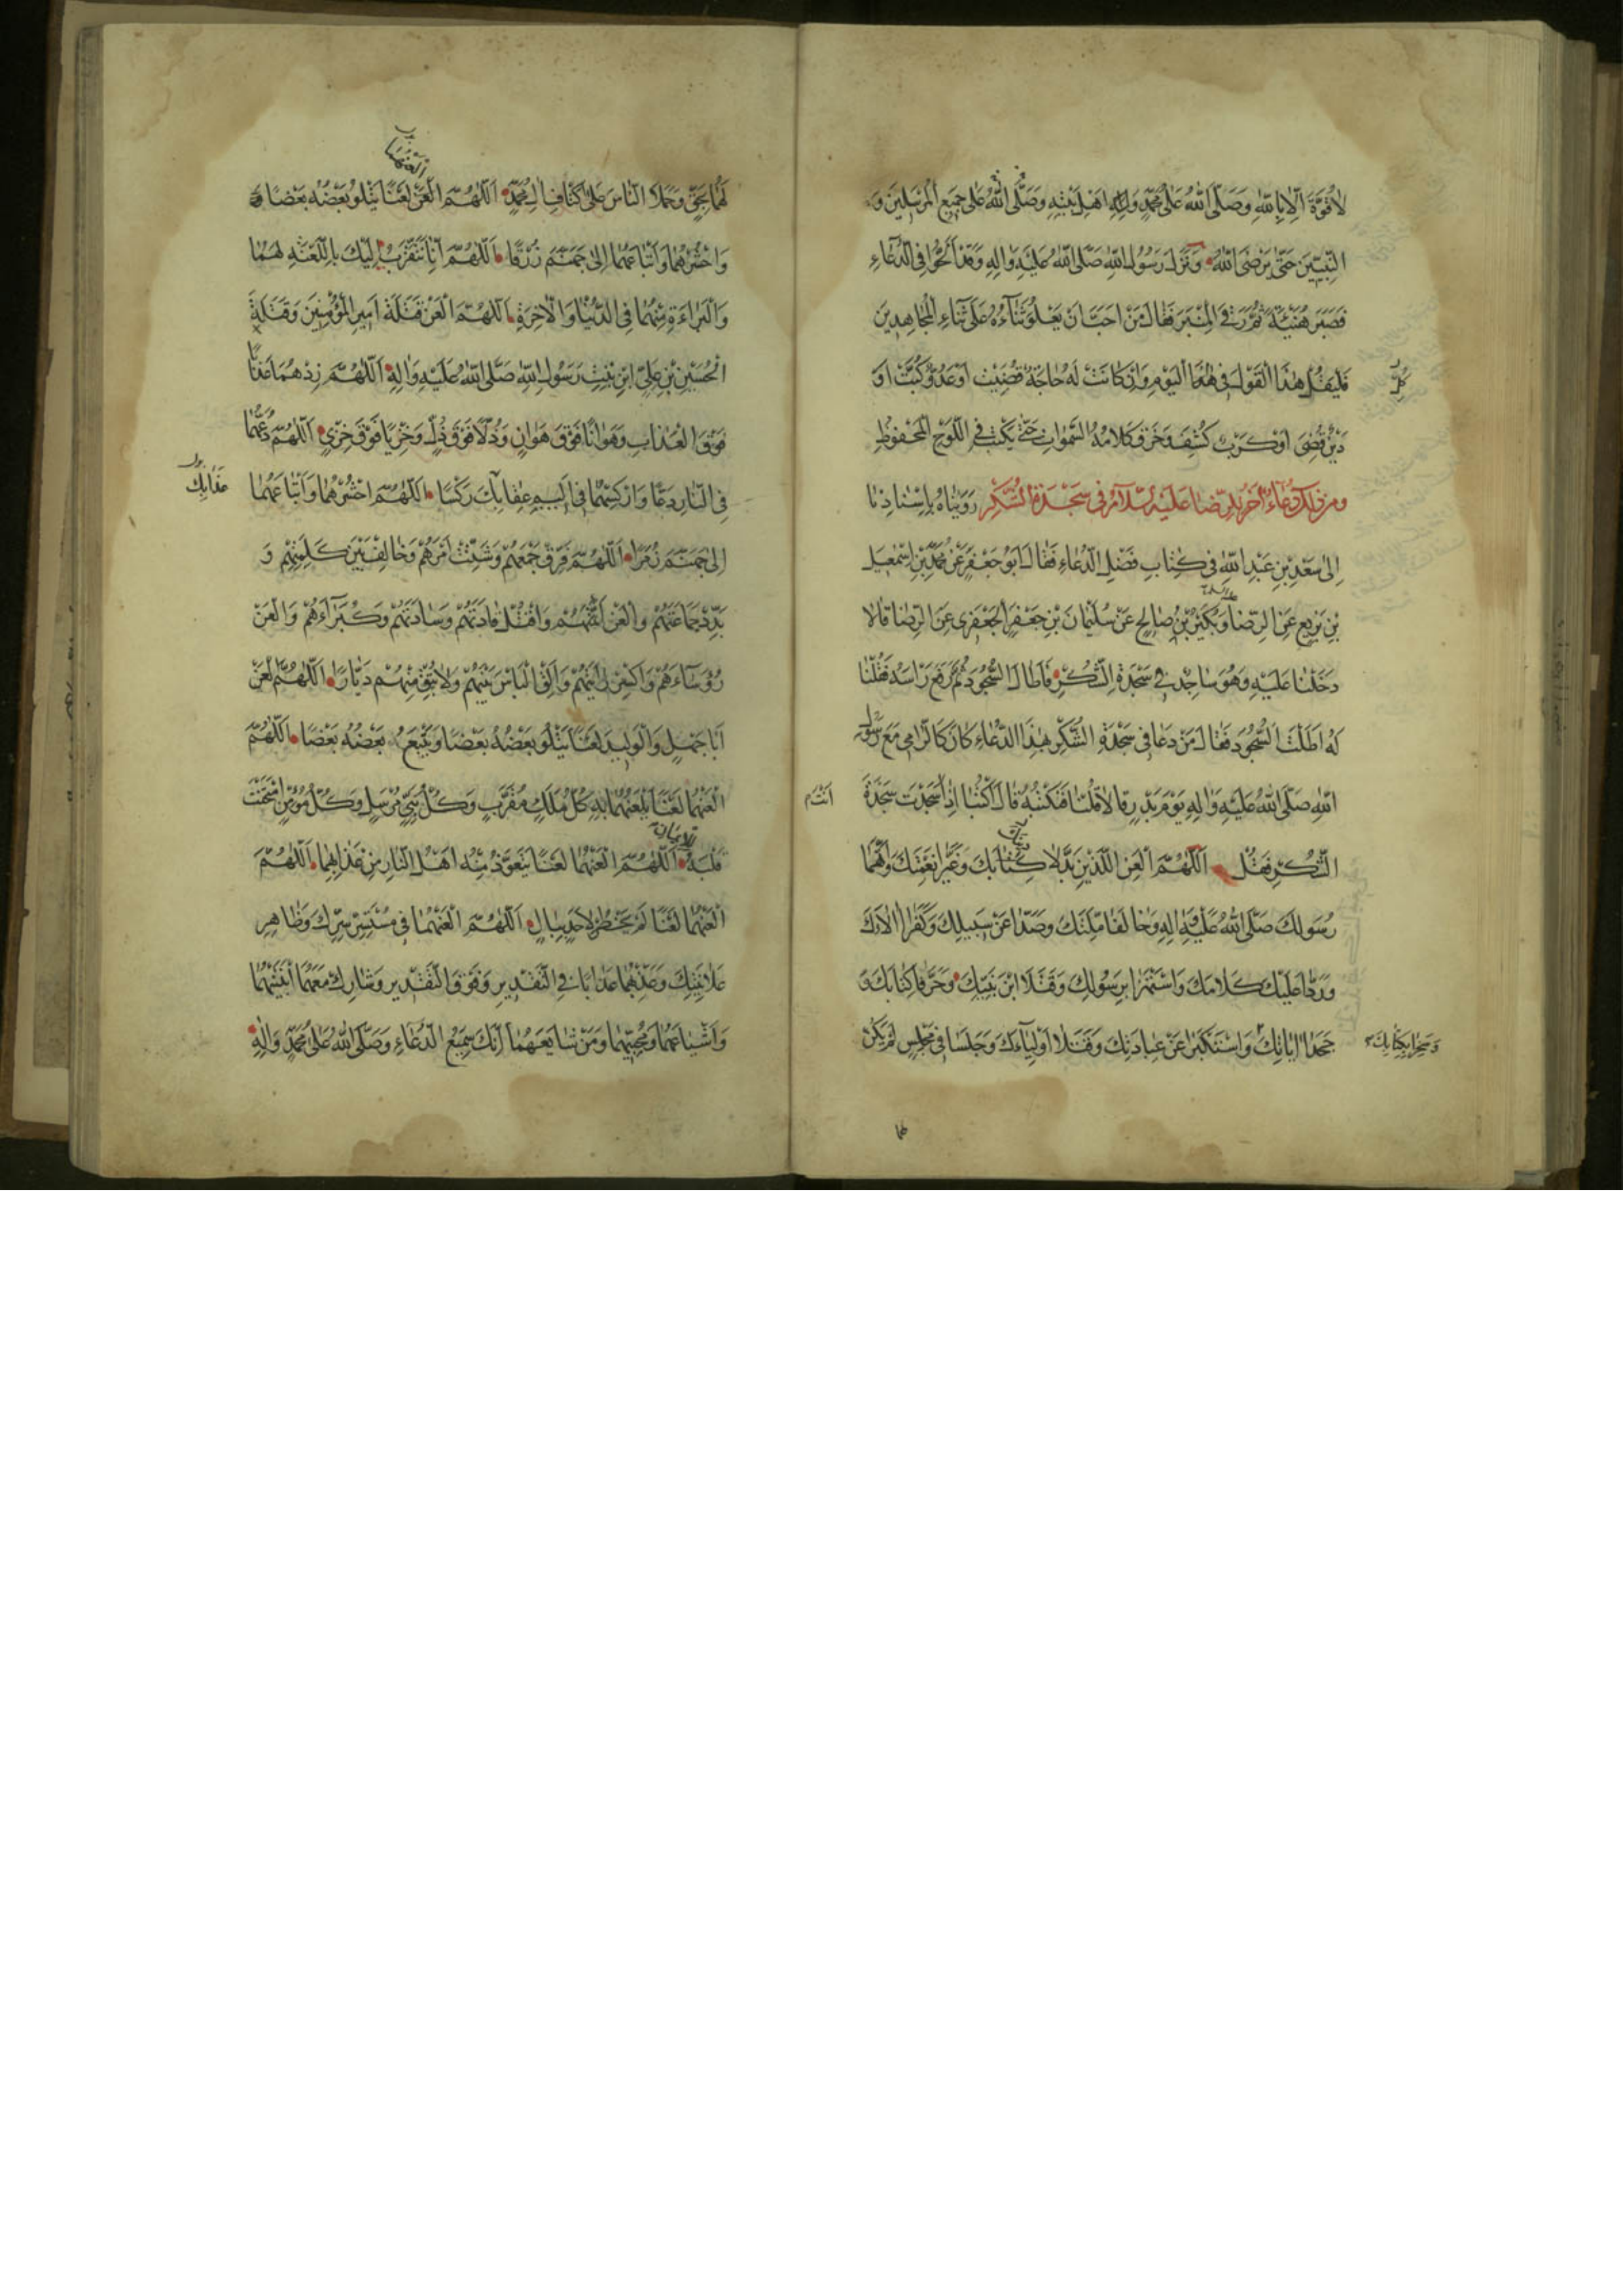 لا قُوَّةَ اِلّا بِاللهِ وَصَلَّى اللهُ عَلى مُحَمَّدٍ وَاله اَهْلِ بَيْتِهِ وَصَلَّى اللهُ عَلى جَميعِ الْمُرْسَلينَ وَ
النَّبِيّينَ حَتّى يَرْضَى اللهُ وَنَزَلَ رَسُولُ اللهِ صَلَّى اللهُ عَلَيْهِ وَالِهِ وَقَدْ اَلَحُّوا فِى الدُّعاءِ
فَصَبَرَ هُنَيْئَةً ثُمَّ رَقِىَ الْمِنْبَرَ فَقالَ مَنْ اَحَبَّ اَنْ يَعْلُوَ ثَناؤُهُ عَلى ثَناءِ الْمُجاهِدينَ
فَلْيَقُلْ هذَا الْقَوْلَ فى هذَا الْيَوْمِ وَاِنْ كانَتْ لَهُ حاجَةٌ قُضِيَتْ اَوْ عَدُوٌّ كُبِتَ اَوْ
كُلِّ
دَيْنٌ قُضِىَ اَوْ كَرْبٌ كُشِفَ وَخَرَقَ كَلامُهُ السَّمواتِ حَتّى يُكْتَبَ فِى اللَّوْحِ الْمَحْفُوظِ
ومن ذلِكَ دُعاءٌ آخَرُ لِلرِّضا عَلَيْهِ السَّلامُ فى سَجْدَةِ الشُّكْرِ رَوَيْناهُ بِاِسْنادِنا
اِلى سَعْدِ بْنِ عَبْدِ اللهِ فى كِتابِ فَضْلِ الدُّعاءِ فَقالَ اَبُو جَعْفَرٍ عَنْ مُحَمَّدِ بْنِ اِسْمعيلَ
بْنِ بَزيعٍ عَنِ الرِّضا وَبُكَيْرُ بْنُ صالِحٍ عَنْ سُلَيْمانَ بْنِ جَعْفَرٍ الْجَعْفَرى عَنِ الرِّضا قالا
دَخَلْنا عَلَيْهِ وَهُوَ ساجِدٌ فى سَجْدَةِ الشُّكْرِ فَاَطالَ السُّجُودَ ثُمَّ رَفَعَ رَاْسَهُ فَقُلْنا
لَهُ اَطَلْتَ السُّجُودَ فَقالَ مَنْ دَعا فى سَجْدَةِ الشُّكْرِ بِهذَا الدُّعاءِ كانَ كَالرّامى مَعَ رَسُولِ
اللهِ صَلَّى اللهُ عَلَيْهِ وَالِهِ يَوْمَ بَدْرٍ قالا قُلْنا فَنَكْتُبُهُ قالَ اكْتُبا اِذا سَجَدْتَ سَجْدَةَ
اَنْتُم
الشُّكْرِ فَقُلْ اَللّهُمَّ الْعَنِ اللَّذَيْنِ بَدَّلا كِتابَكَ وَغَيَّرا نِعْمَتَكَ وَاتَّهَما
رَسُولَكَ صَلَّى اللهُ عَلَيْهِ وَالِهِ وَخالَفا مِلَّتَكَ وَصَدّا عَنْ سَبيلِكَ وَكَفَرا الاءَكَ
وَرَدّا عَلَيْكَ كَلامَكَ وَاسْتَهْزَا بِرَسُولِكَ وَقَتَلا ابْنَ نَبِيِّكَ وَحَرَّفا كِتابَكَ وَ
جَحَدا اياتِكَ وَاسْتَكْبَرا عَنْ عِبادَتِكَ وَقَتَلا اَوْلِياءَكَ وَجَلَسا فى مَجْلِسٍ لَمْ يَكُنْ
وَسَخِرا بِكِتابِكَ
لَهُما بِحَقٍّ وَحَمَلا النّاسَ عَلى اَكْتافِ الِ مُحَمَّدٍ اَللّهُمَّ الْعَنْ لَعْنًا يَتْلُو بَعْضُهُ بَعْضًا
الْعَنْهُما
وَاحْشُرْهُما وَاَتْباعَهُما اِلى جَهَنَّمَ زُرْقًا اَللّهُمَّ اِنّا نَتَقَرَّبُ اِلَيْكَ بِاللَّعْنَةِ لَهُما
وَالْبَراءَةِ مِنْهُما فِى الدُّنْيا وَالْاخِرَةِ اَللّهُمَّ الْعَنْ قَتَلَةَ اَميرِ الْمُؤْمِنينَ وَقَتَلَةَ
الْحُسَيْنِ بْنِ عَلِىٍّ ابْنِ بِنْتِ رَسُولِ اللهِ صَلَّى اللهُ عَلَيْهِ وَالِهِ اَللّهُمَّ زِدْهُما عَذابًا
فَوْقَ الْعَذابِ وَهَوانًا فَوْقَ هَوانٍ وَذُلّاً فَوْقَ ذُلٍّ وَخِزْيًا فَوْقَ خِزْىٍ اَللّهُمَّ دُعَّهُما
فِى النّارِ دَعًّا وَارْكِسْهُما فى اَليمِ عِقابِكَ رَكْسًا اَللّهُمَّ احْشُرْهُما وَاَتْباعَهُما
عَذابِكَ
اِلى جَهَنَّمَ زُمَرًا اَللّهُمَّ فَرِّقْ جَمْعَهُمْ وَشَتِّتْ اَمْرَهُمْ وَخالِفْ بَيْنَ كَلِمَتِهِمْ وَ
بَدِّدْ جَماعَتَهُمْ وَالْعَنْ اَئِمَّتَهُمْ وَاقْتُلْ قادَتَهُمْ وَسادَتَهُمْ وَكُبَراءَهُمْ وَالْعَنْ
رُؤَساءَهُمْ وَاكْسِرْ رايَتَهُمْ وَاَلْقِ الْبَاْسَ بَيْنَهُمْ وَلا تُبْقِ مِنْهُمْ دَيّارًا اَللّهُمَّ الْعَنْ
اَبا جَهْلٍ وَالْوَليدَ لَعْنًا يَتْلُو بَعْضُهُ بَعْضًا وَيَتْبَعُ بَعْضُهُ بَعْضًا اَللّهُمَّ
الْعَنْهُما لَعْنًا يَلْعَنُهُما بِهِ كُلُّ مَلَكٍ مُقَرَّبٍ وَكُلُّ نَبِىٍّ مُرْسَلٍ وَكُلُّ مُؤْمِنٍ امْتَحَنْتَ
قَلْبَهُ اَللّهُمَّ الْعَنْهُما لَعْنًا يَتَعَوَّذُ مِنْهُ اَهْلُ النّارِ مِنْ عَذابِهِما اَللّهُمَّ
لِلْايمانِ
الْعَنْهُما لَعْنًا لَمْ يَخْطُرْ لِاَحَدٍ بِبالٍ اَللّهُمَّ الْعَنْهُما فى مُسْتَسِرِّ سِرِّكَ وَظاهِرِ
عَلانِيَتِكَ وَعَذِّبْهُما عَذابًا فِى التَّقْديرِ وَفَوْقَ التَّقْديرِ وَشارِكْ مَعَهُما ابْنَتَيْهِما
وَاَشْياعَهُما وَمُحِبّيهِما وَمَنْ شايَعَهُما اِنَّكَ سَميعُ الدُّعاءِ وَصَلَّى اللهُ عَلى مُحَمَّدٍ وَالِهِ